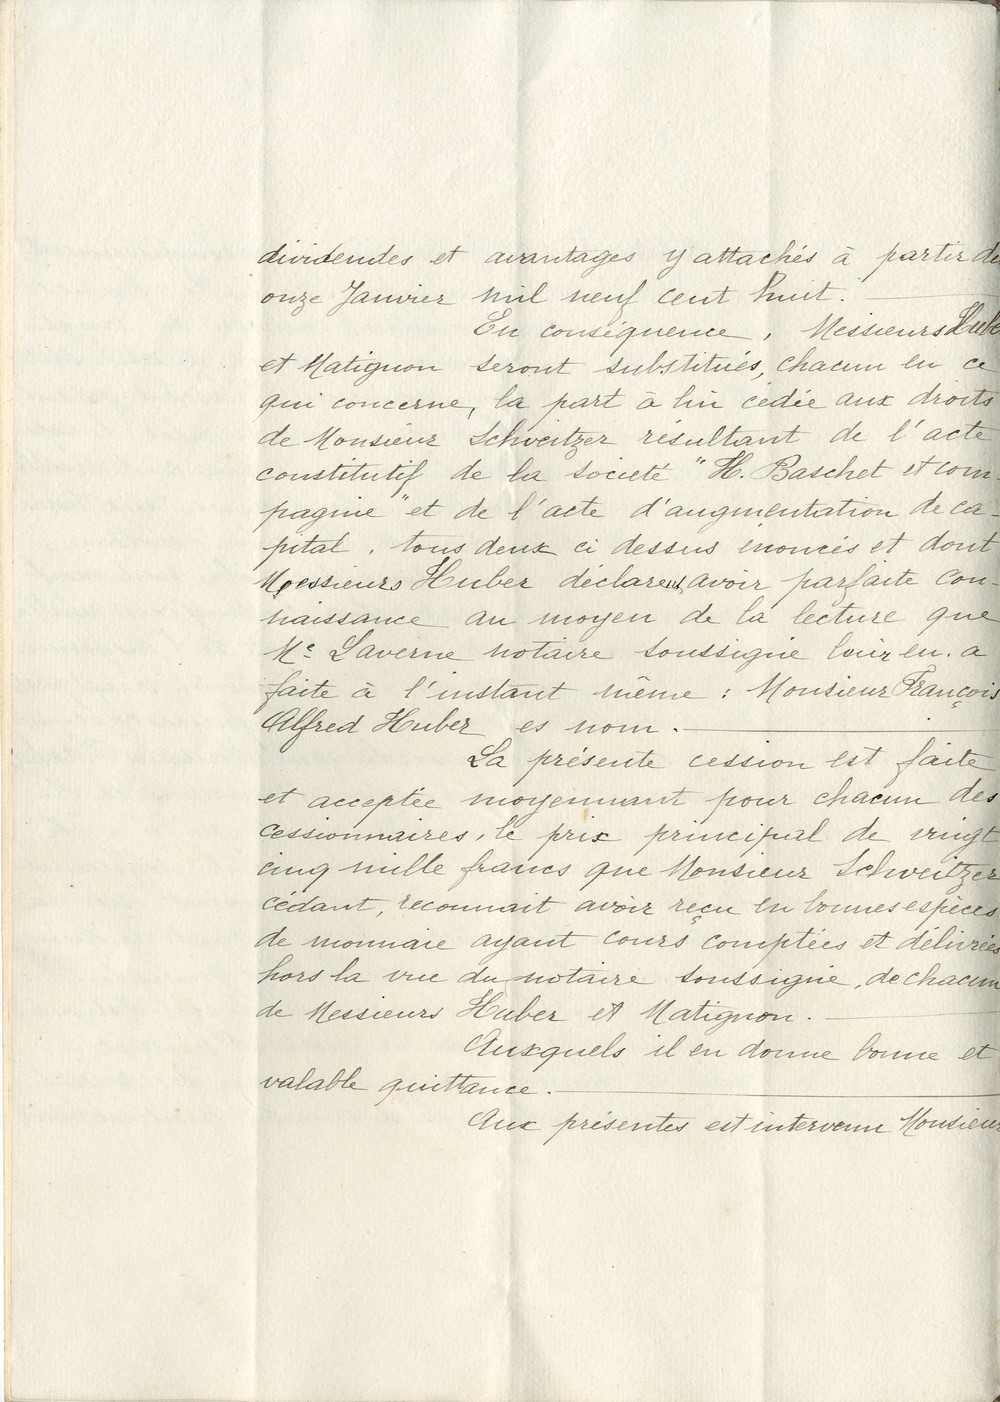 dividendes et avantages y attachés à partir du
onze Janvier mil neuf cent huit.
En conséquence, Messieurs Hub
et Matignon seront substitués, chacun en ce
qui concerne, la part à lui cédée aux droits
de Monsieur Schweitzer résultant de l'acte
constitutif de la societé "H. Baschet et com-
pagnie" et de l'acte d'augmentation de ca-
pital, tous deux ci dessus énoncés et dont
Messieurs Huber déclarent avoir parfaite con-
naissance au moyen de la lecture que
Me Laverne notaire soussigné leur en a
faite à l'instant même : Monsieur François
Alfred Huber es nom.
La présente cession est faite
et acceptée moyennant pour chacun des
cessionnaires, le prix principal de vingt
cinq mille francs que Monsieur Schweitzer
cédant, reconnait avoir reçu en bonnes espèces
de monnaie ayant cours comptées et délivrées
hors la vue du notaire soussigné, de chacun
de Messieurs Huber et Matignon.
Auxquels il en donne bonne et
valable quittance.
Aux présentes est intervenu Monsieur